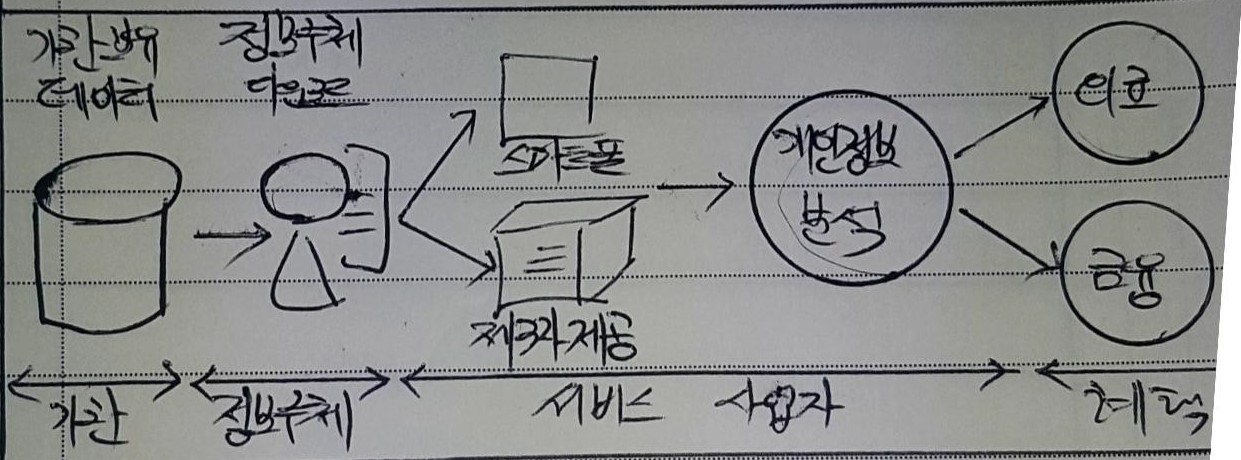 기관보유
데이터
정보주체
다운로드
스마트폰
제3자제공
개인정보
분석
의료
금융
기관
정보주체
서비스 사업자
혜택